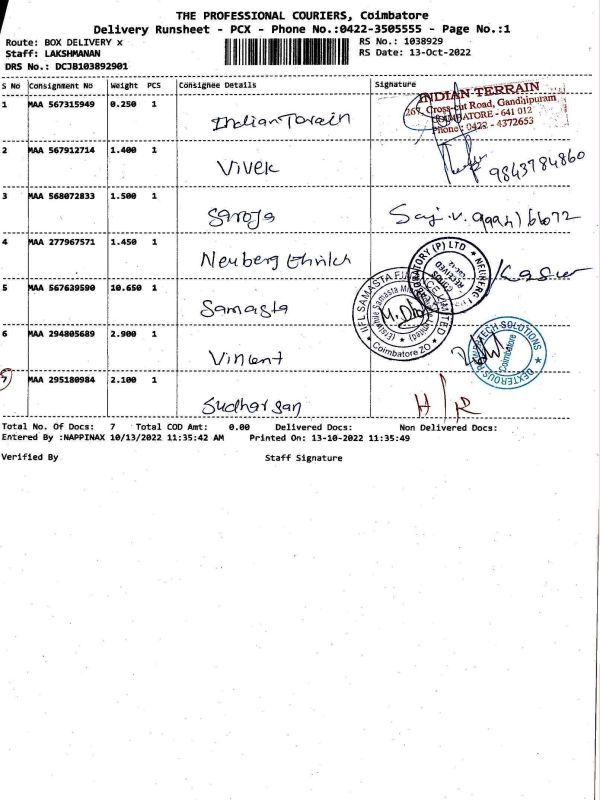 THE PROFESSIONAL COURIERS, Coimbatore
Delivery Runsheet - PCX - Phone No.:0422-3505555 - Page No.:1
Route: BOX DELIVERY x RS No.: 1038929
Staff: LAKSHMANAN RS Date: 13-Oct-2022
DRS No.: DCJB103892901
S No Consignment No Weight PCS Consignee Details Signature
1 MAA 567315949 0.250 1 Indian Torain
INDIAN TERRAIN
267, Cross-cut Road, Gandhipuram
COIMBATORE - 641 012
Phone : 0422 - 4372653
2 MAA 567912714 1.400 1 Vivek 9843784860
3 MAA 568072833 1.500 1 Saroja
4 MAA 277967571 1.450 1 Neuberg
(P) LTD RECEIVED
5 MAA 567639590 10.650 1 Samasta
IIFL SAMASTA FINANCE LIMITED
Coimbatore ZO
6 MAA 294805689 2.900 1 Vincent
DEXTEROUS TECH SOLUTIONS
Coimbatore
MAA 295180984 2.100 1 Sudharsan H/R
Total No. Of Docs: 7 Total COD Amt: 0.00 Delivered Docs: Non Delivered Docs:
Entered By :NAPPINAX 10/13/2022 11:35:42 AM Printed On: 13-10-2022 11:35:49
Verified By Staff Signature